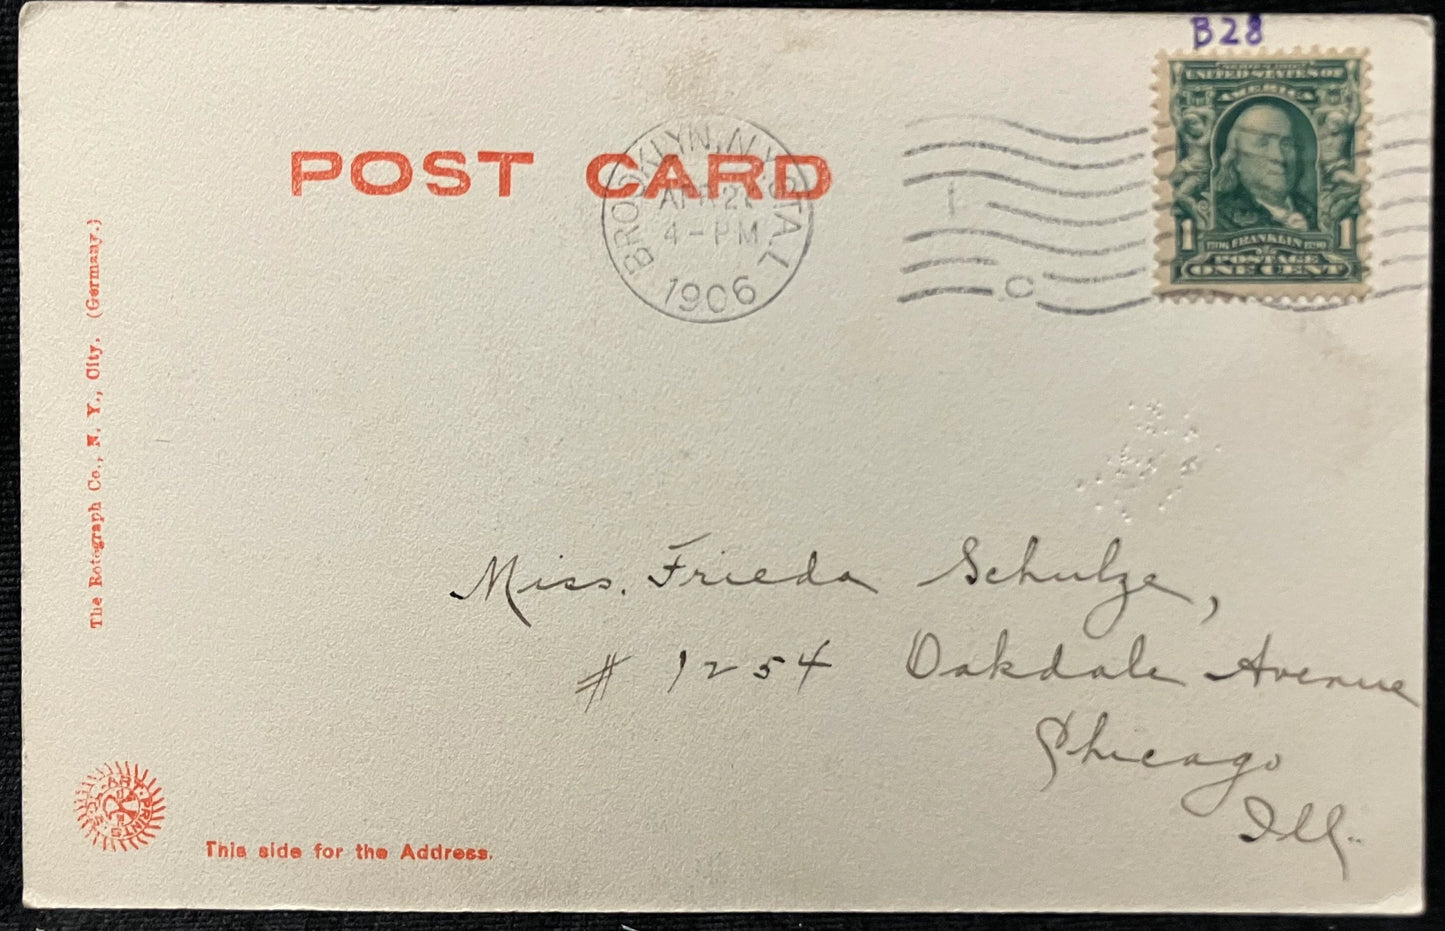 B28
SERIES 1902
UNITED STATES OF
AMERICA
1 1706 FRANKLIN 1790 1
POSTAGE
ONE CENT
POST CARD
BROOKLYN, N.Y. STA. L
APR 21
4-PM
1906
1
C
The Rotograph Co., N. Y., City. (Germany.)
Miss. Frieda Schulze,
# 1254 Oakdale Avenue
Chicago
Ill.
SOL-ART PRINTS
This side for the Address.